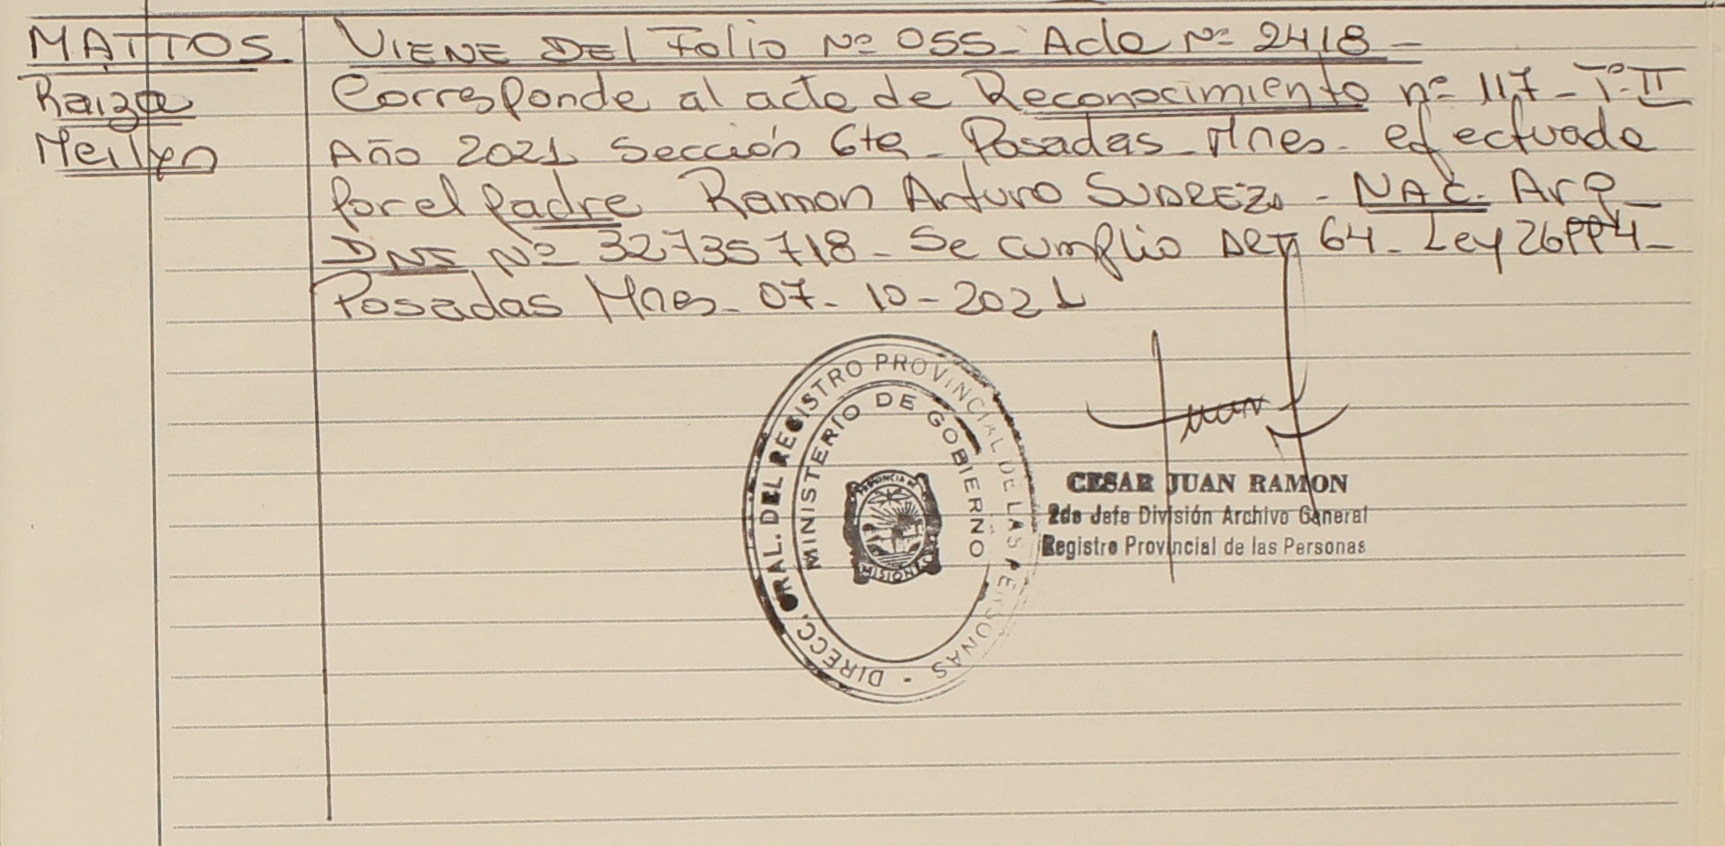 MATTOS
Raiza
Meilyn
VIENE DEL Folio Nº 055- Acta Nº 2418 -
Corresponde al acta de Reconocimiento nº 117 - Tº II
Año 2021 Sección 6ta - Posadas - Mnes - efectuada
por el padre Ramon Arturo SUAREZ - NAC. Arg -
DNI Nº 32735718 - Se cumplio Art 64 - Ley 26994 -
Posadas Mnes - 07 - 10 - 2021
DIRECC. GRAL. DEL REGISTRO PROVINCIAL DE LAS PERSONAS -
MINISTERIO DE GOBIERNO
PROVINCIA DE
MISIONES
Juan
CESAR JUAN RAMON
2do Jefe División Archivo General
Registro Provincial de las Personas